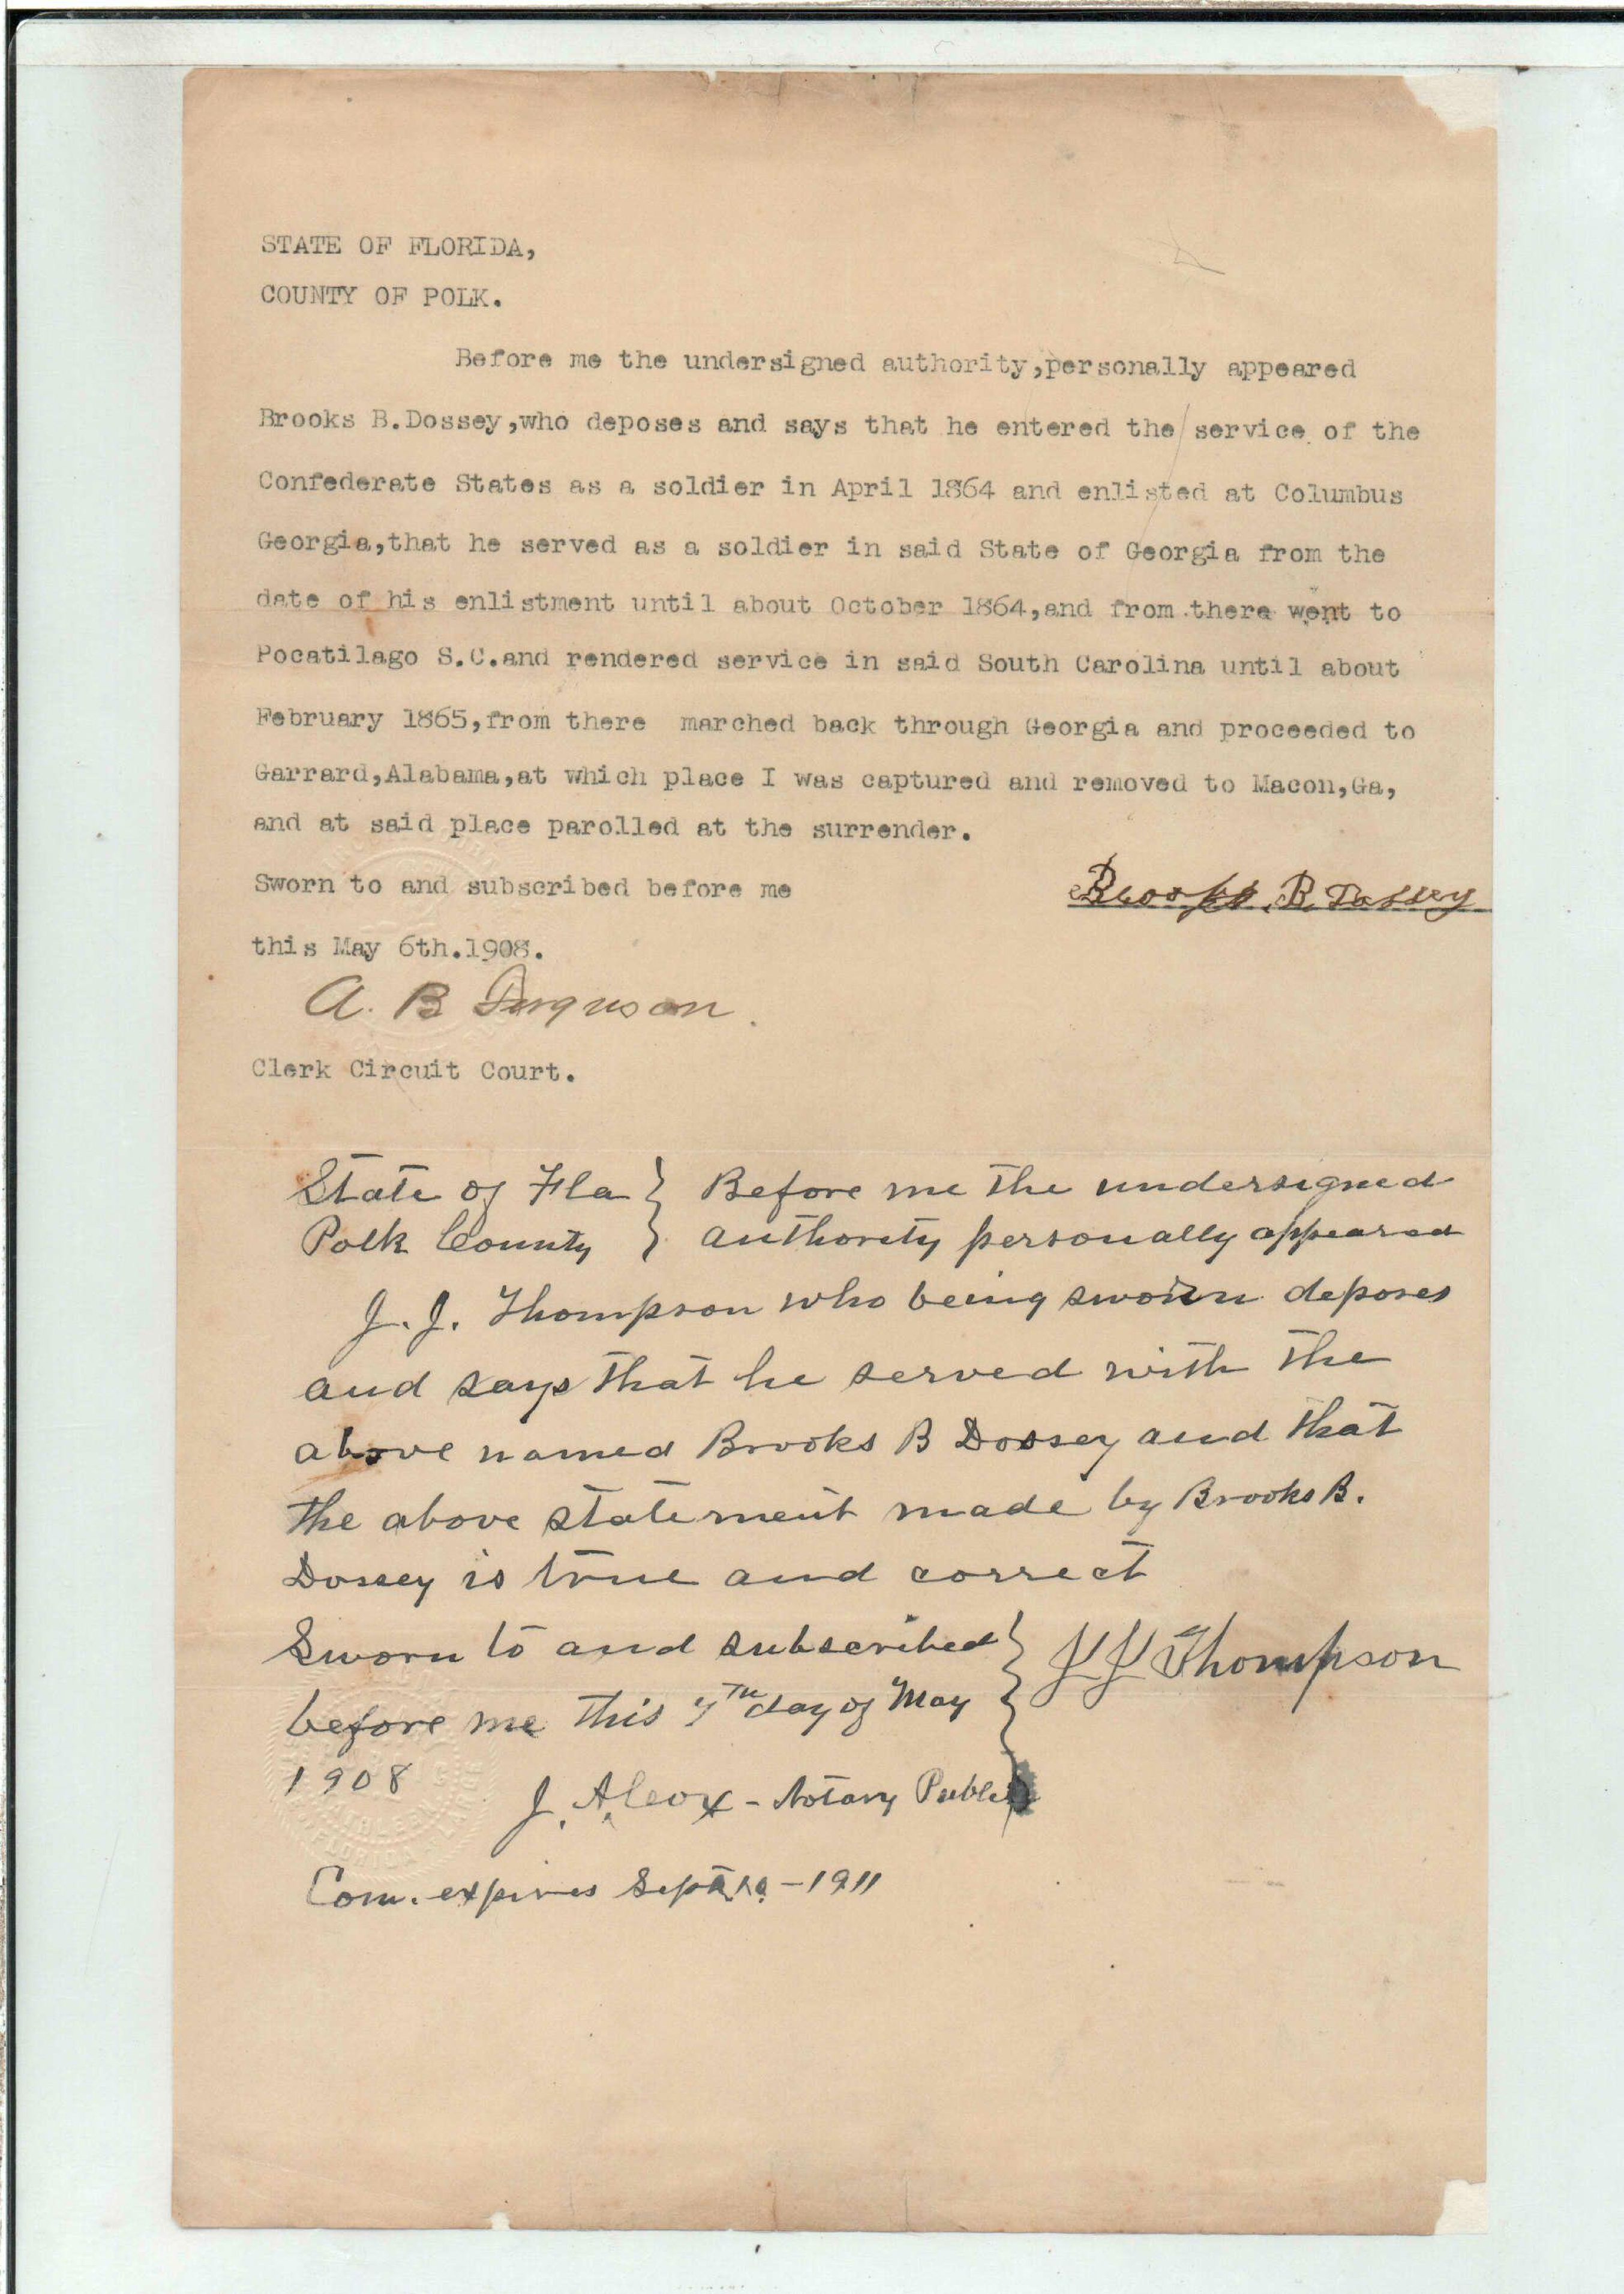 STATE OF FLORIDA,
COUNTY OF POLK.
Before me the undersigned authority,personally appeared
Brooks B.Dossey,who deposes and says that he entered the service of the
Confederate States as a soldier in April 1864 and enlisted at Columbus
Georgia,that he served as a soldier in said State of Georgia from the
date of his enlistment until about October 1864,and from there went to
Pocatilago S.C.and rendered service in said South Carolina until about
February 1865,from there marched back through Georgia and proceeded to
Garrard,Alabama,at which place I was captured and removed to Macon,Ga,
and at said place parolled at the surrender.
Sworn to and subscribed before me
Brooks B Dossey
this May 6th.1908.
A. B Ferguson.
Clerk Circuit Court.
State of Fla } Before me the undersigned
Polk County } authority personally appeared
J. J. Thompson who being sworn deposes
and says that he served with the
above named Brooks B Dossey and that
the above statement made by Brooks B.
Dossey is true and correct
Sworn to and subscribed } J J Thompson
before me this 7th day of May
1908
J. A. Cox - Notary Public
Com. expires Sept -1911